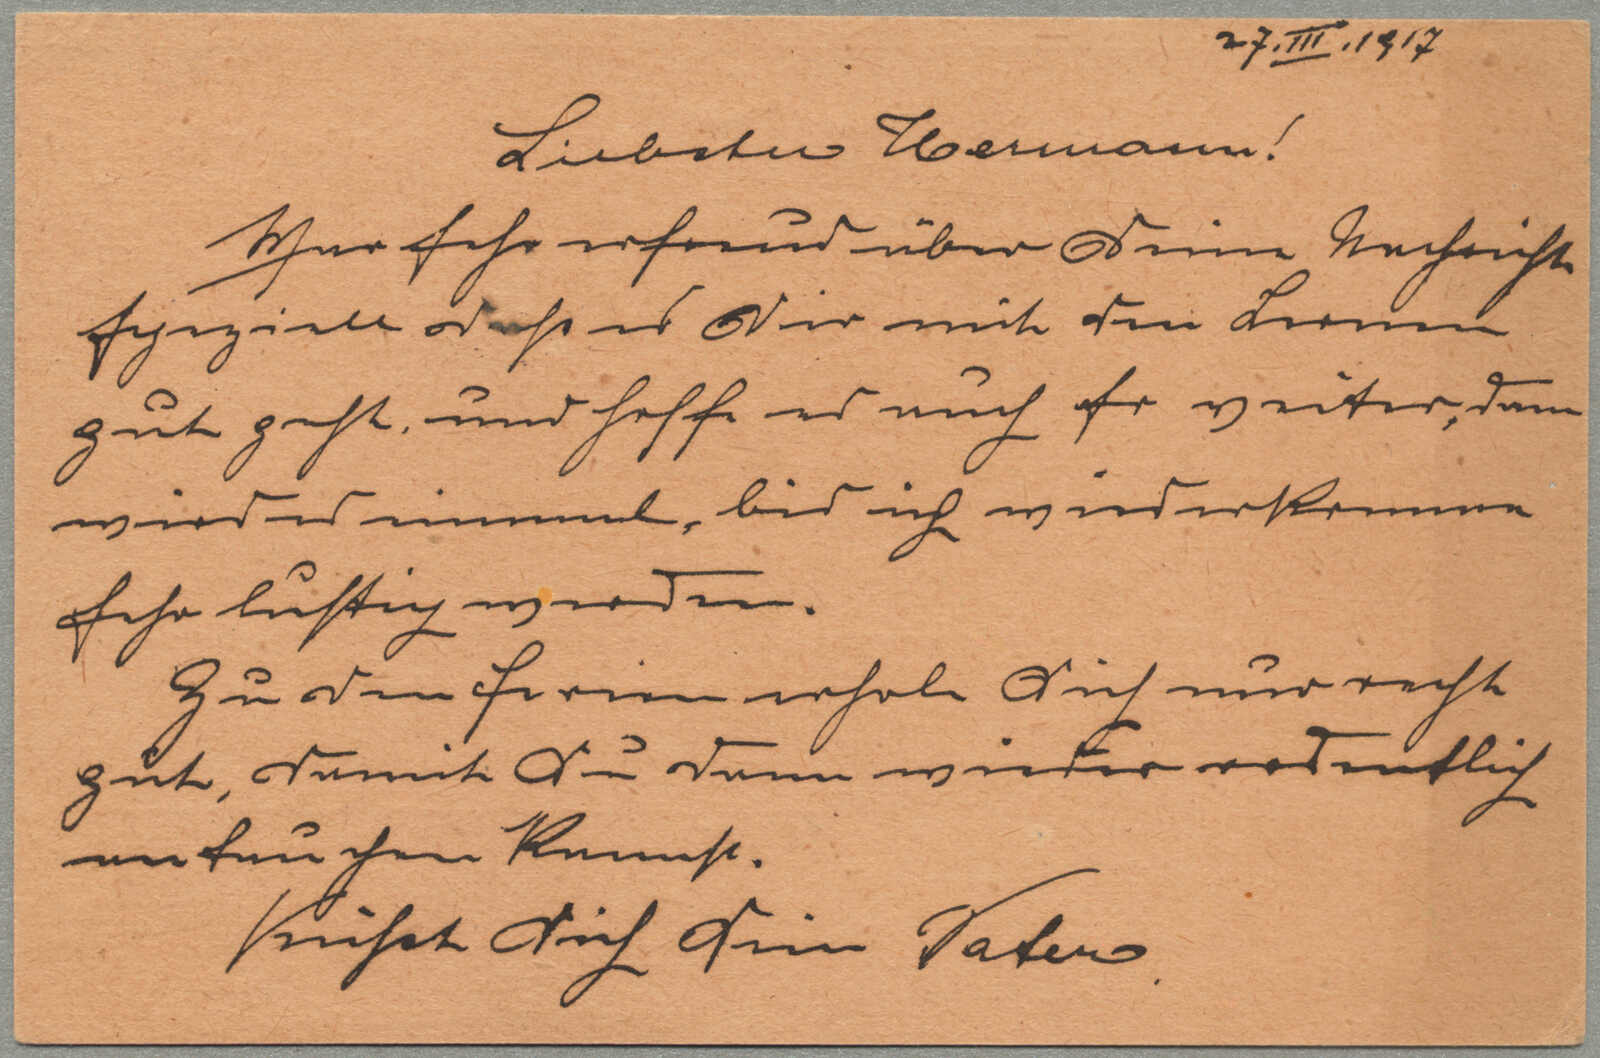 27.III.1917
Liebster Hermann!
War sehr erfreud über Deine Nachricht
speziell daß es Dir mit den Lernen
gut geht, und hoffe es auch so weiter, dann
wird es einmal, bis ich wiederkomme
sehr lustig werden.
Zu den Ferien erhole Dich nur recht
gut, damit Du dann wieder ordentlich
antauchen kannst.
Küßt Dich Dein Vater.